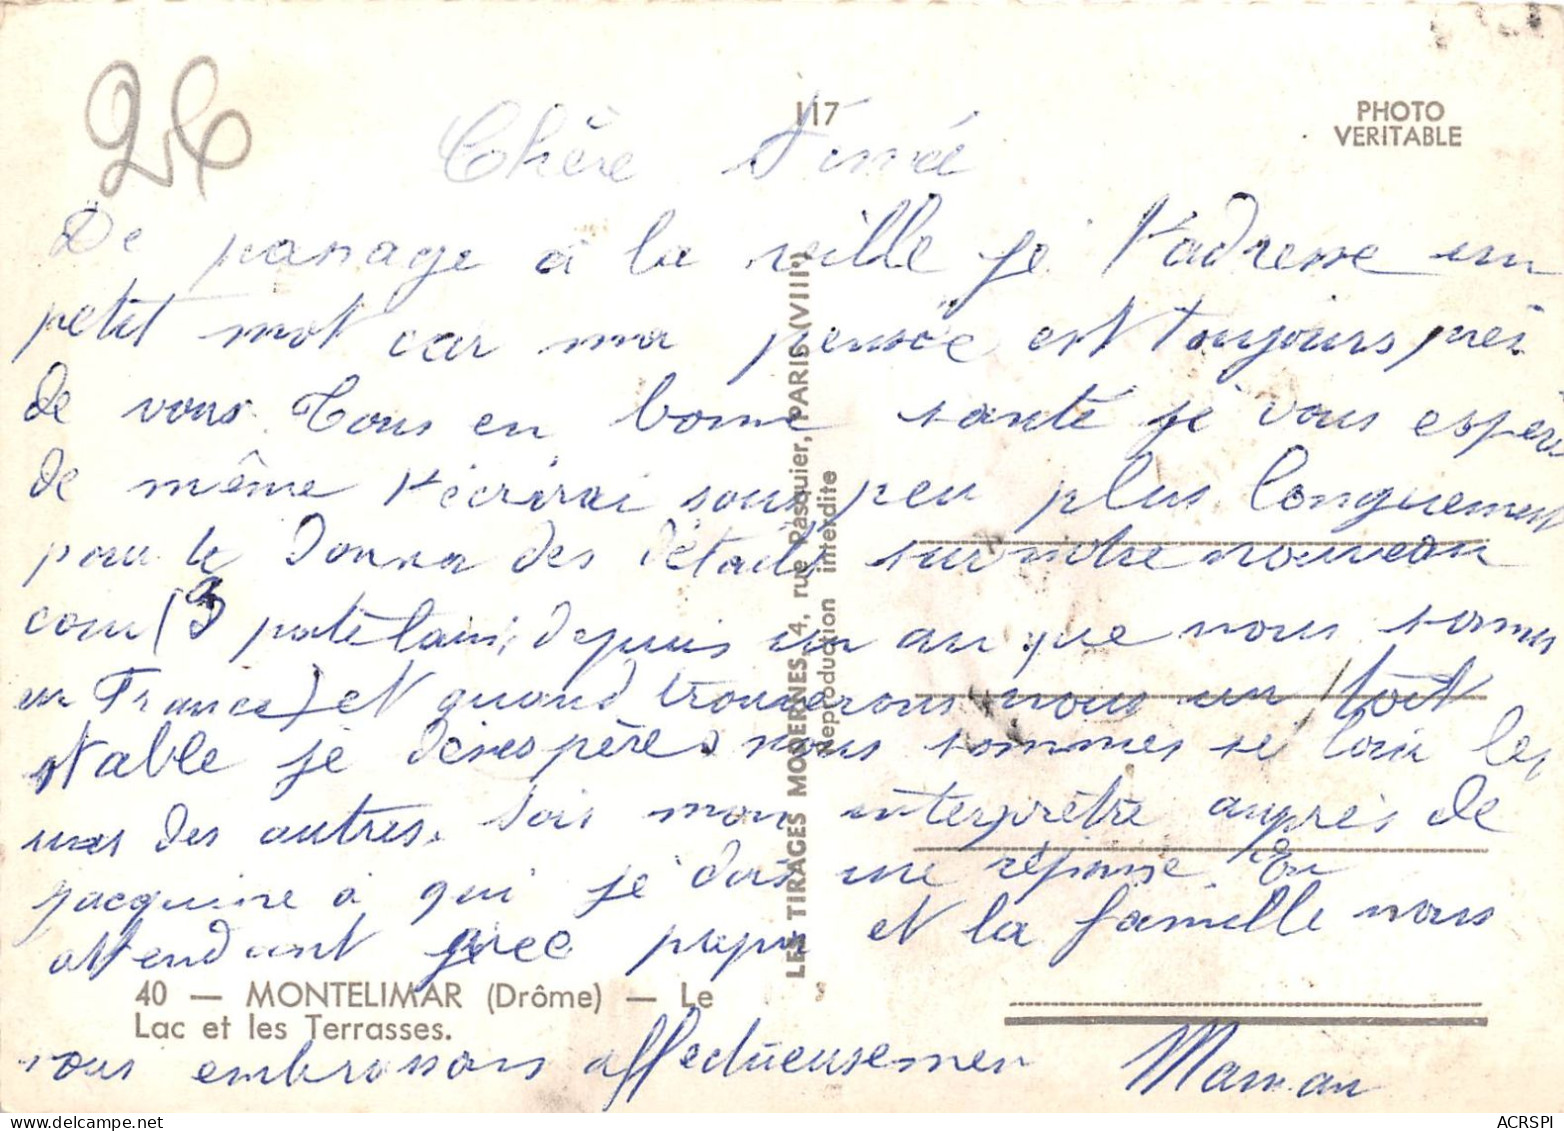 26
117
PHOTO
VERITABLE
Chère Aimée
De passage à la ville je t'adresse un
petit mot car ma pensée est toujours près
de vous. Tous en bonne santé je vous espère
de même t'écrirai sous peu plus longuement
pour te donner des détails sur notre nouveau
coin (3 patelains depuis un an que nous sommes
en France) et quand trouverons nous un toit
stable je désespère nous sommes si loin les
unes des autres. Sois mon interprètre auprès de
Jacquine à qui je dois une réponse. En
attendant avec papa et la famille nous
vous embrassons affectueusement Maman
40 — MONTELIMAR (Drôme) — Le
Lac et les Terrasses.
LES TIRAGES MODERNES, 4, rue Pasquier, PARIS (VIIIe)
Reproduction interdite
ACRSPI